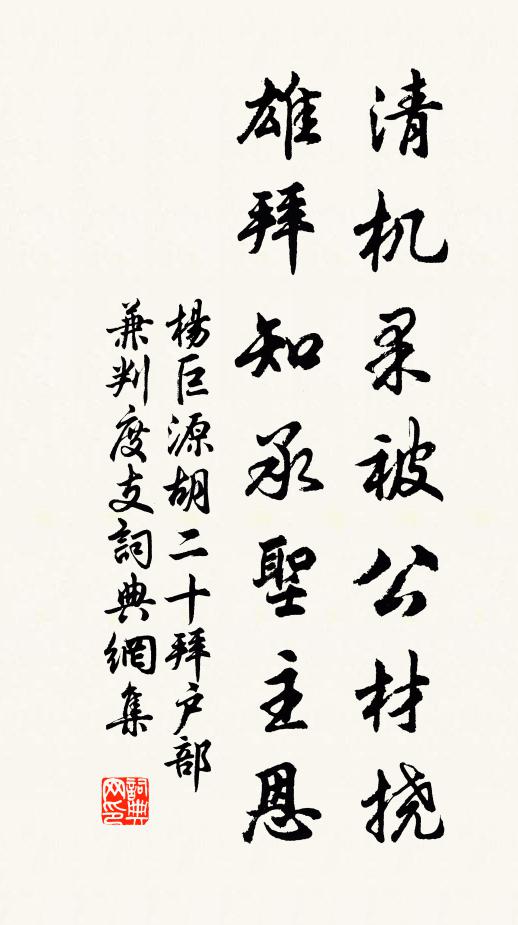 清机果被公材挠
雄拜知承聖主恩
楊巨源胡二十拜户部
兼判度支詞典網集
詞典网印